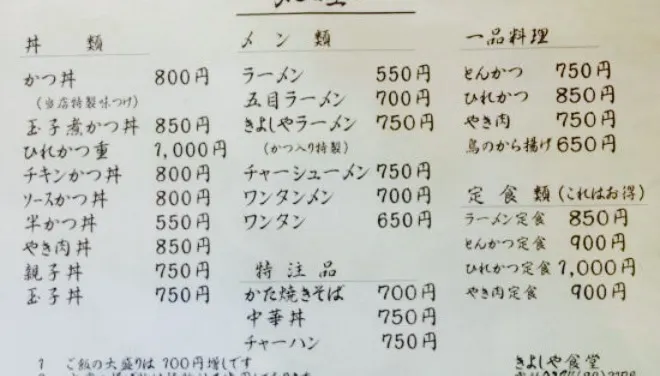 丼類
かつ丼 800円
(当店特製味つけ)
玉子煮かつ丼 850円
ひれかつ重 1,000円
チキンかつ丼 800円
ソースかつ丼 800円
半かつ丼 550円
やき肉丼 850円
親子丼 750円
玉子丼 750円
メン類
ラーメン 550円
五目ラーメン 700円
きよしやラーメン 750円
(かつ入り特製)
チャーシューメン 750円
ワンタンメン 700円
ワンタン 650円
特注品
かた焼きそば 700円
中華丼 750円
チャーハン 750円
一品料理
とんかつ 750円
ひれかつ 850円
やき肉 750円
鳥のから揚げ 650円
定食類(これはお得)
ラーメン定食 850円
とんかつ定食 900円
ひれかつ定食 1,000円
やき肉定食 900円
1 ご飯の大盛りは100円増しです
きよしや食堂